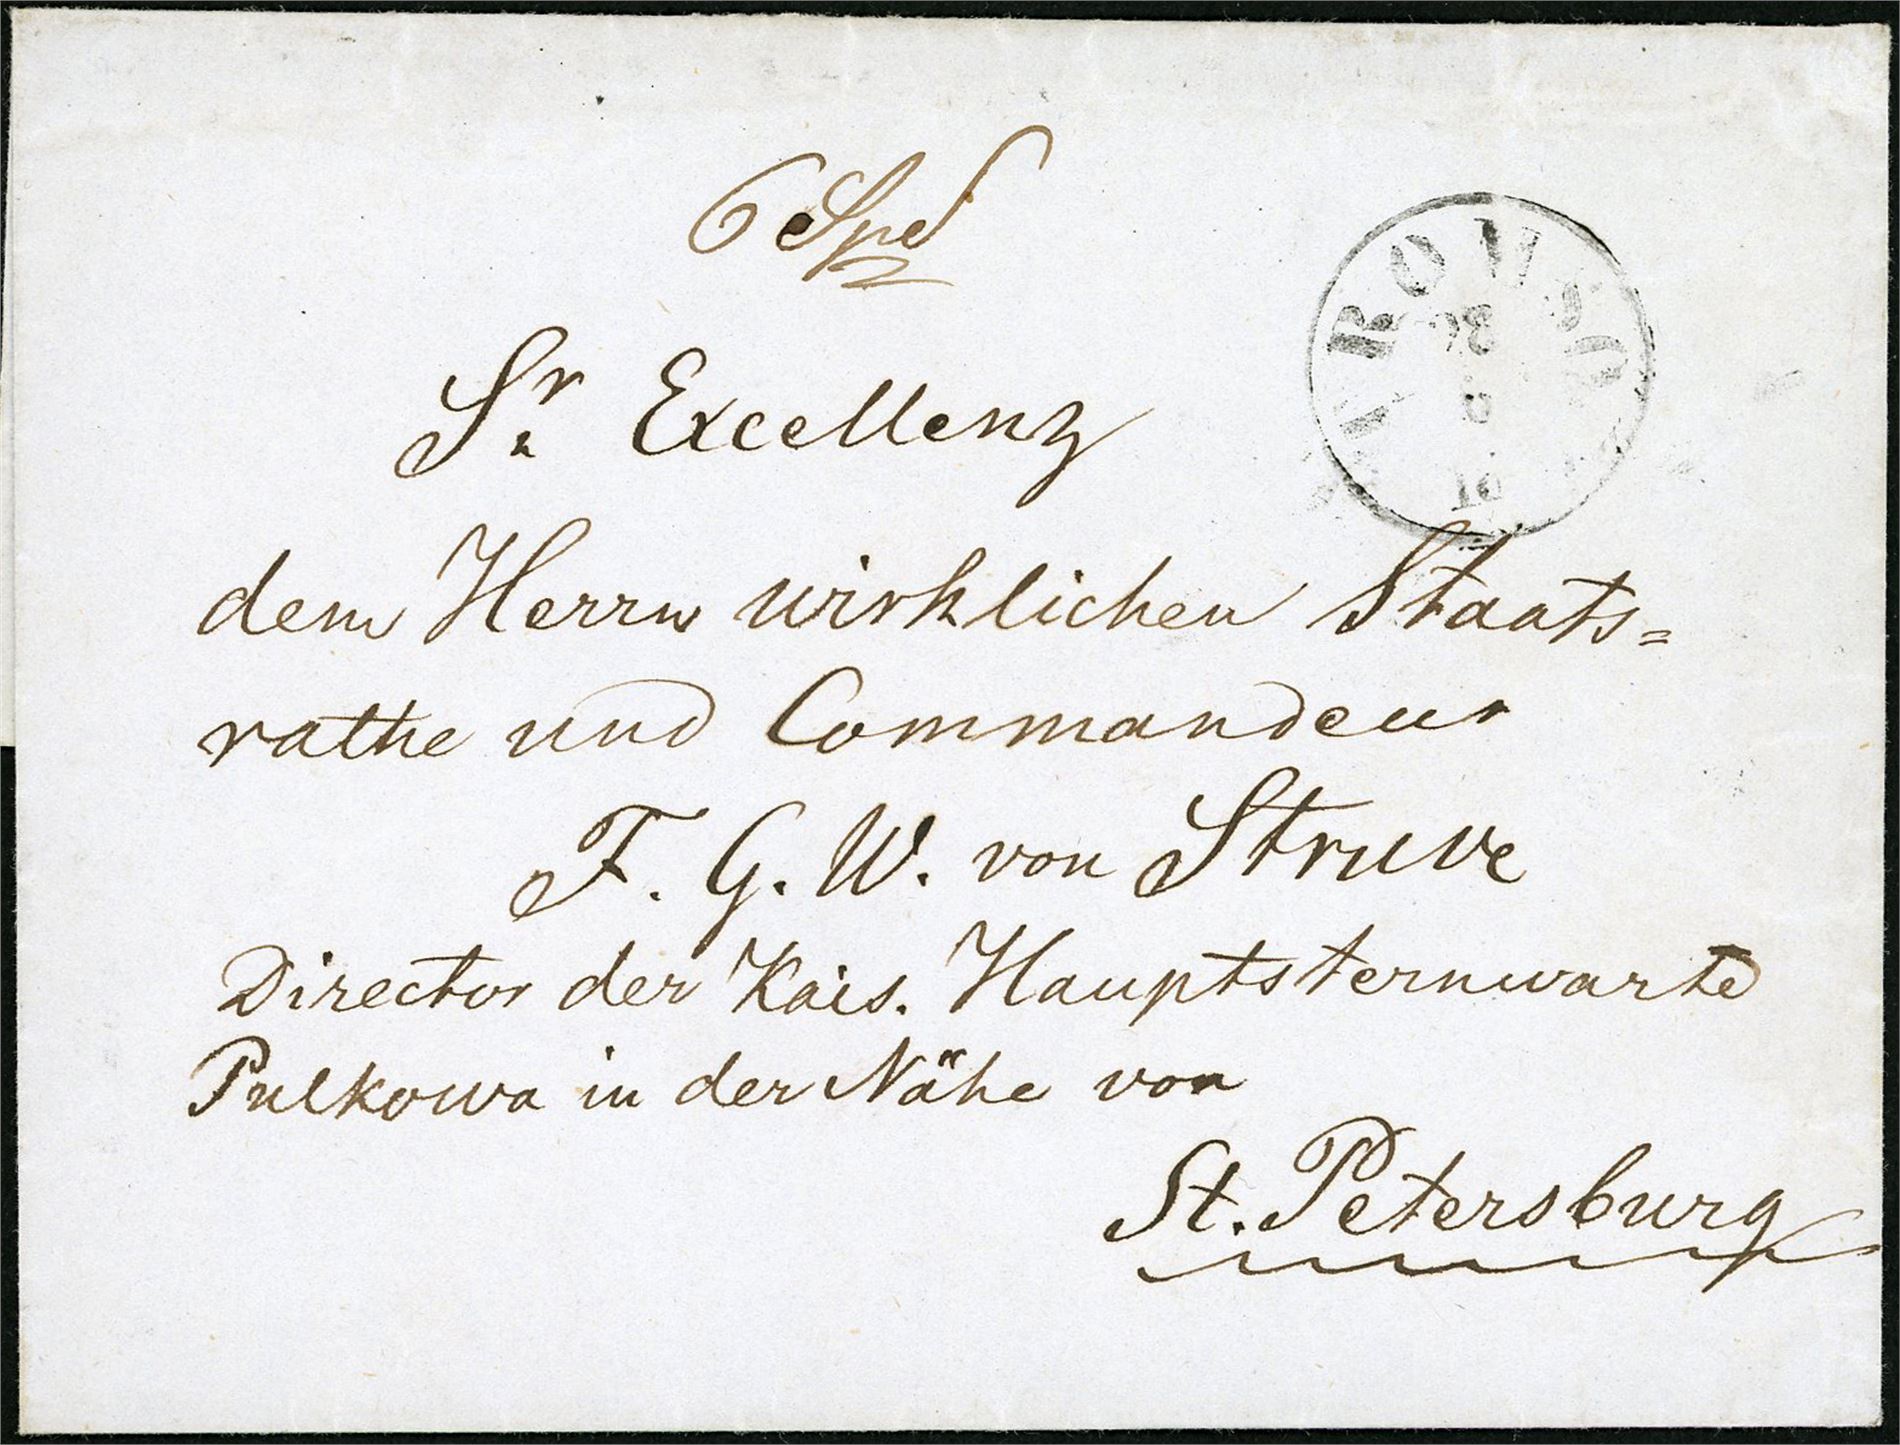 6 Spd
TROMSØ
Sr. Excellenz
dem Herrn wirklichen Staats=
rathe und Commandeur
F. G. W. von Struve
Director der Kais. Hauptsternwarte
Pulkowa in der Nähe von
St. Petersburg